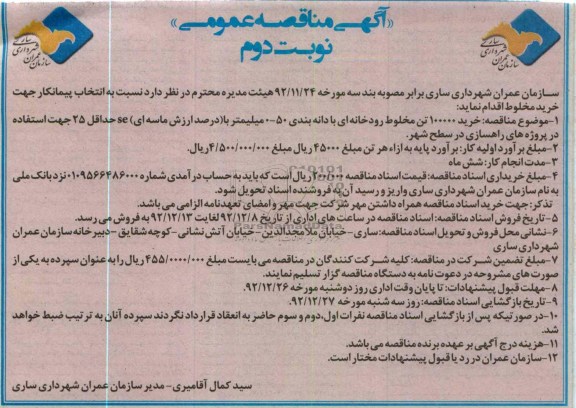 «آگهی مناقصه عمومی»
نوبت دوم
سازمان عمران شهرداری ساری برابر مصوبه بند سه مورخه ۹۲/۱۱/۲۴ هیئت مدیره محترم در نظر دارد نسبت به انتخاب پیمانکار جهت
خرید مخلوط اقدام نماید:
۱-موضوع مناقصه: خرید ۱۰۰۰۰۰ تن مخلوط رودخانه ای با دانه بندی ۵۰-۰ میلیمتر با (درصد ارزش ماسه ای) se حداقل ۲۵ جهت استفاده
در پروژه های راهسازی در سطح شهر.
۲-مبلغ برآورد اولیه کار: برآورد پایه به ازاء هر تن مبلغ ۴۵۰۰۰ ریال مبلغ ۴/۵۰۰/۰۰۰/۰۰۰ ریال.
۳-مدت انجام کار: شش ماه
۴-مبلغ خریداری اسناد مناقصه: قیمت اسناد مناقصه ریال است که باید به حساب درآمدی شماره ۰۱۰۹۵۶۶۴۸۶۰۰۰ نزد بانک ملی
به نام سازمان عمران شهرداری ساری واریز و رسید آن به فروشنده اسناد تحویل شود.
تذکر: جهت خرید اسناد مناقصه همراه داشتن مهر شرکت جهت مهر و امضای تعهدنامه الزامی می باشد.
۵-تاریخ فروش اسناد مناقصه: اسناد مناقصه در ساعت های اداری از تاریخ ۹۲/۱۲/۸ لغایت ۹۲/۱۲/۱۳ به فروش می رسد.
۶-نشانی محل فروش و تحویل اسناد مناقصه: ساری-خیابان ملامجدالدین-خیابان آتش نشانی-کوچه شقایق-دبیرخانه سازمان عمران
شهرداری ساری
۷-مبلغ تضمین شرکت در مناقصه: کلیه شرکت کنندگان در مناقصه می بایست مبلغ ۴۵۵/۰۰۰/۰۰۰ ریال را به عنوان سپرده به یکی از
صورت های مشروحه در دعوت نامه به دستگاه مناقصه گزار تسلیم نمایند.
۸-مهلت قبول پیشنهادات: تا پایان وقت اداری روز دوشنبه مورخه ۹۲/۱۲/۲۶.
۹-تاریخ بازگشایی اسناد مناقصه: روز سه شنبه مورخه ۹۲/۱۲/۲۷.
۱۰-در صورتیکه پس از بازگشایی اسناد مناقصه نفرات اول، دوم و سوم حاضر به انعقاد قرارداد نگردند سپرده آنان به ترتیب ضبط خواهد
شد.
۱۱-هزینه درج آگهی بر عهده برنده مناقصه می باشد.
۱۲-سازمان عمران در رد یا قبول پیشنهادات مختار است.
سید کمال آقامیری-مدیر سازمان عمران شهرداری ساری